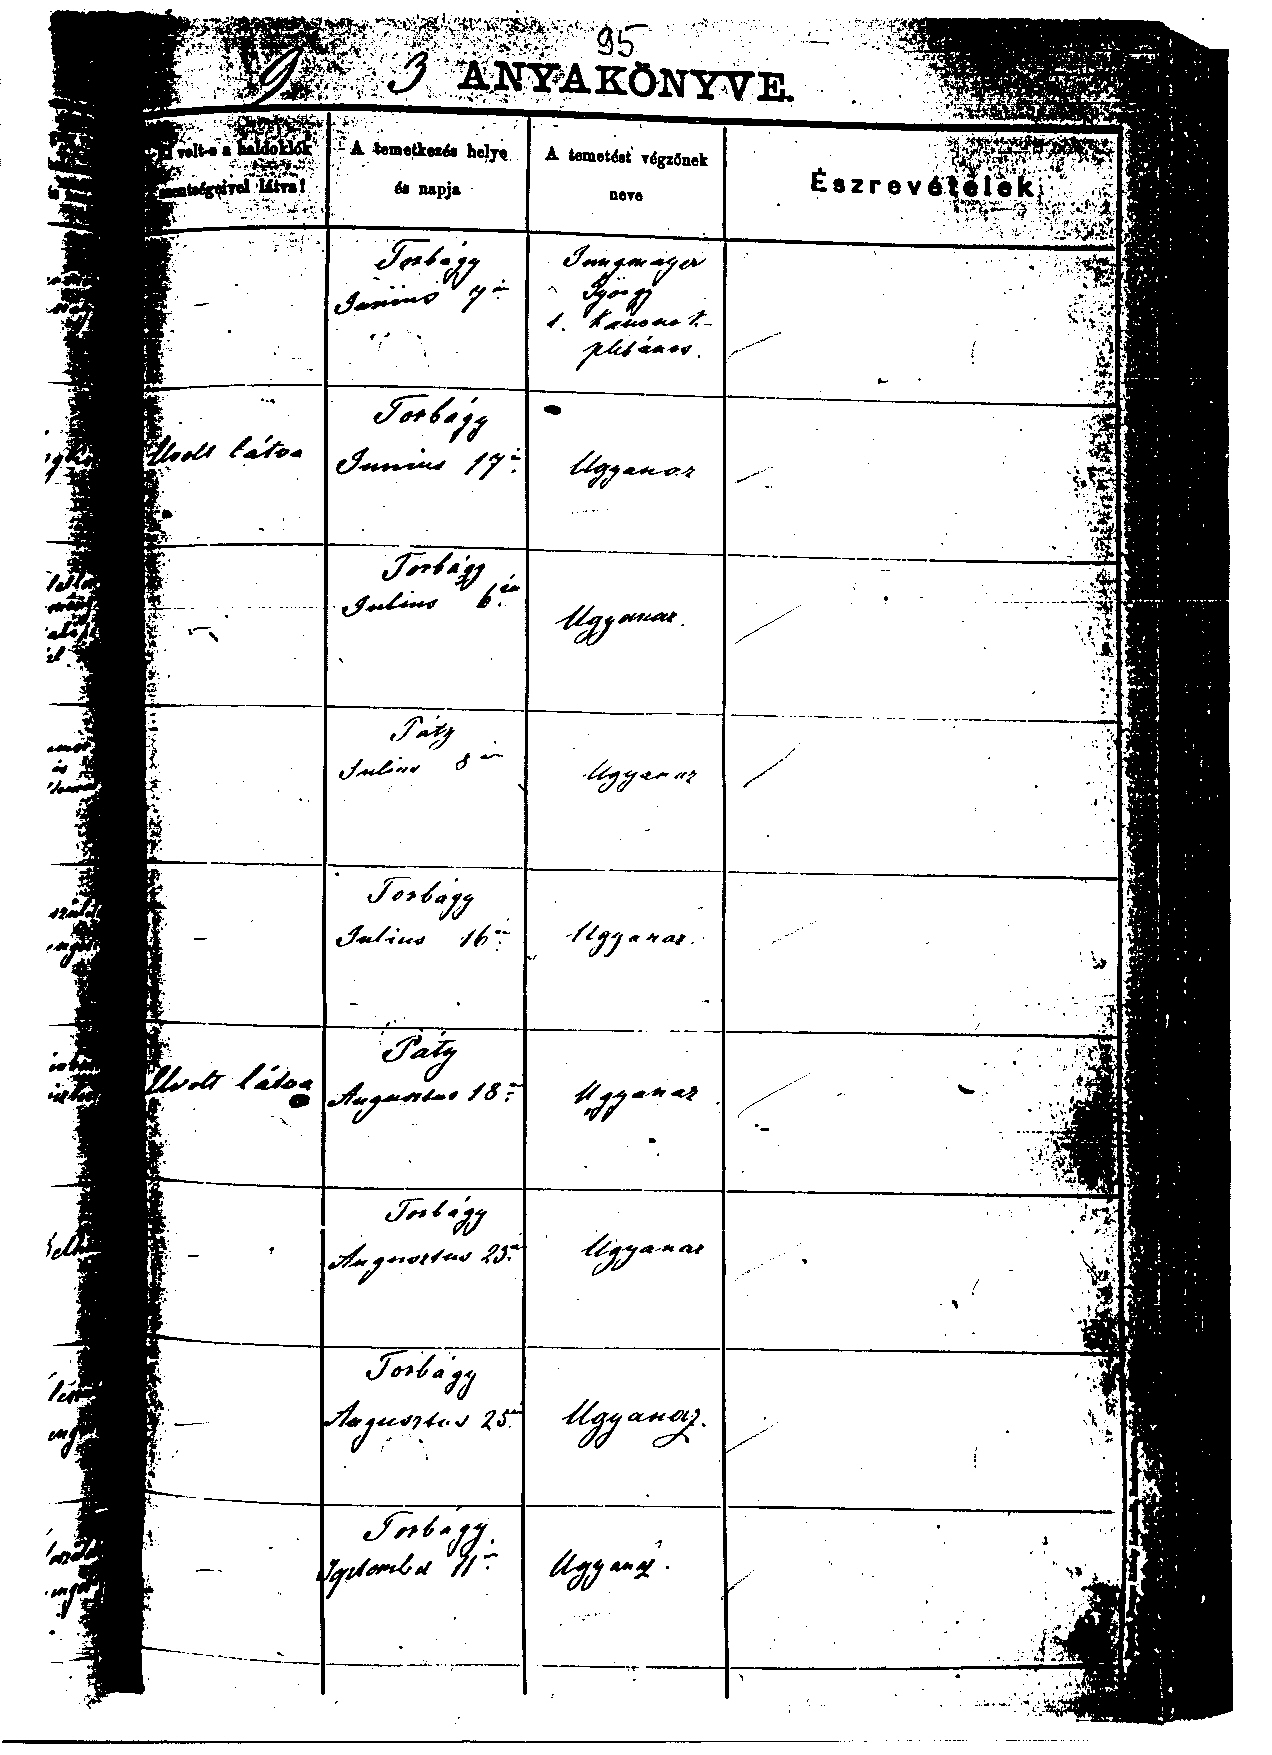 95
9 3 ANYAKÖNYVE.
volt-e a haldoklók
szentségeivel látva!
A temetkezés helye
és napja
A temetést végzőnek
neve
Észrevételek.
–
Torbágy
Junius 7én
Jungmayer
György
t. kanonok
plébános.
volt látva
Torbágy
Junius 17én
Ugyanaz
–
Torbágy
Julius 6én
Ugyanaz.
Páty
Julius 8án
Ugyanaz
–
Torbágy
Julius 16án
Ugyanaz.
volt látva
Páty
Augusztus 18án
Ugyanaz
–
Torbágy
Augusztus 23án
Ugyanaz
–
Torbágy
Augusztus 25én
Ugyanaz.
–
Torbágy.
September 11én
Ugyanaz.